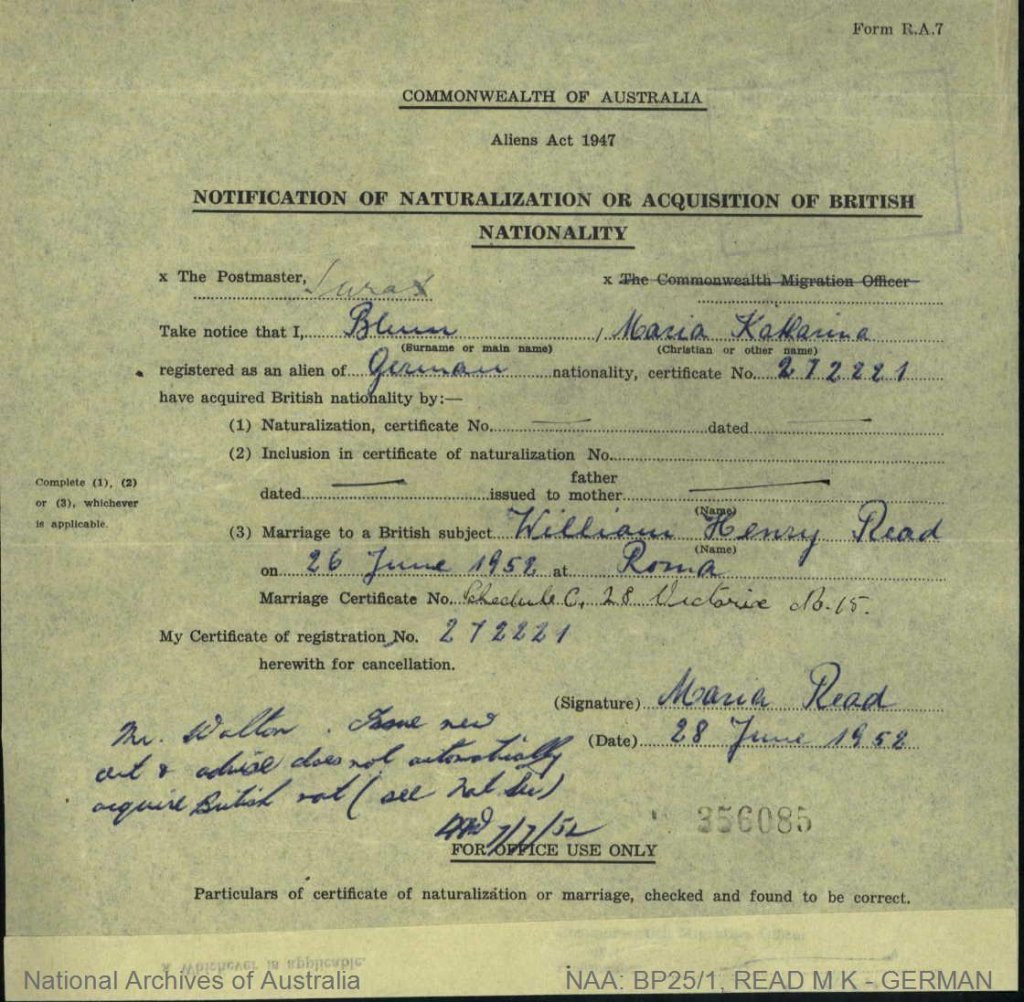 Form R.A.7
COMMONWEALTH OF AUSTRALIA
Aliens Act 1947
NOTIFICATION OF NATURALIZATION OR ACQUISITION OF BRITISH
NATIONALITY
x The Postmaster, Surat x The Commonwealth Migration Officer
Take notice that I, Blum, Maria Katharina
(Surname or main name) (Christian or other name)
registered as an alien of German nationality, certificate No. 272221
have acquired British nationality by:—
(1) Naturalization, certificate No. — dated —
(2) Inclusion in certificate of naturalization No.
Complete (1), (2)
or (3), whichever
is applicable.
father
dated — issued to mother —
(Name)
(3) Marriage to a British subject William Henry Read
(Name)
on 26 June 1952 at Roma
Marriage Certificate No. Schedule C, 28 Victoriae No. 15.
My Certificate of registration No. 272221
herewith for cancellation.
(Signature) Maria Read
(Date) 28 June 1952
Mr. Walton. Issue new
cert & advise does not automatically
acquire British nat (see Nat Sec)
7/7/52
356085
FOR OFFICE USE ONLY
Particulars of certificate of naturalization or marriage, checked and found to be correct.
x Whichever is applicable.
National Archives of Australia NAA: BP25/1, READ M K - GERMAN